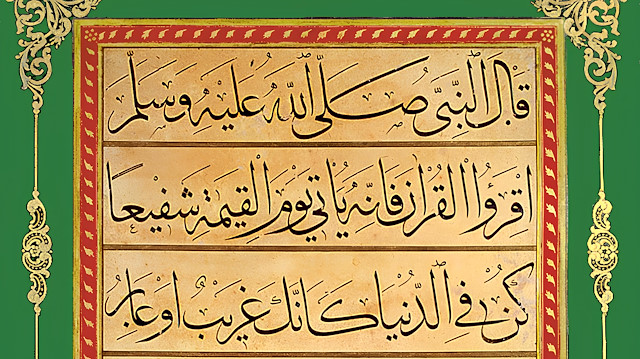 قال النبي صلى الله عليه وسلم
اقرؤا القرآن فانه يأتي يوم القيمة شفيعا
كن في الدنيا كانك غريب او عابر